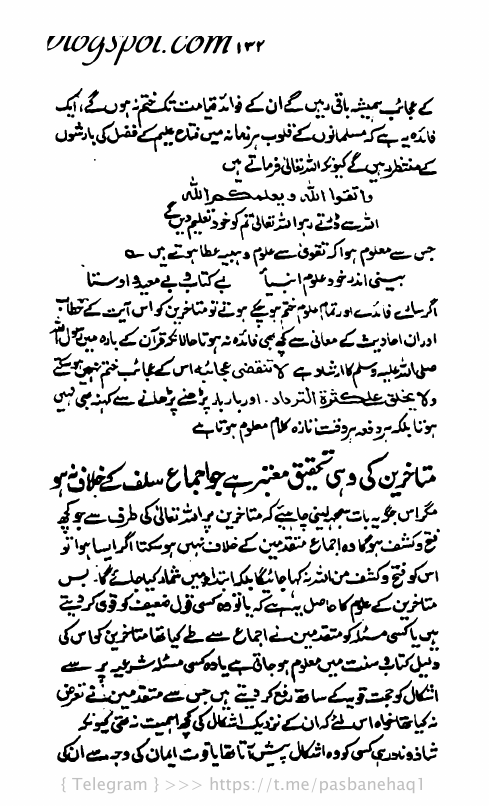 blogspot.com ۱۳۲
کے عجائب ہمیشہ باقی رہیں گے ان کے فوائد قیامت تک ختم نہ ہوں گے، ایک
فائدہ یہ ہے کہ مسلمانوں کے قلوب ہر زمانہ میں فتاح علیم کے فضل کی بارشوں
کے منتظر رہیں گے کیونکہ اللہ تعالیٰ فرماتے ہیں
واتقوا اللہ ویعلمکم اللہ
اللہ سے ڈرتے رہو اللہ تعالیٰ تم کو خود تعلیم دیں گے
جس سے معلوم ہوا کہ تقویٰ سے علوم وہبیہ عطا ہوتے ہیں ے
بینی اندر خود علوم انبیأ بے کتاب و بے معید و اوستا
اگر سارے فائدے اور تمام علوم ختم ہو چکے ہوتے تو متاخرین کو اس آیت کے خطاب
اور ان احادیث کے معانی سے کچھ بھی فائدہ نہ ہوتا حالانکہ قرآن کے بارہ میں رسول اللہ
صلی اللہ علیہ وسلم کا ارشاد ہے لا تنقضی عجائبہ اس کے عجائب ختم نہیں ہو سکتے
ولا یخلق علی کثرۃ الترداد. اور بار بار پڑھنے پڑھانے سے کہنہ بھی نہیں
ہوتا بلکہ ہر دفعہ ہر وقت تازہ کلام معلوم ہوتا ہے
متاخرین کی وہی تحقیق معتبر ہے جو اجماع سلف کے خلاف نہ ہو
مگر اس جگہ یہ بات سمجھ لینی چاہیے کہ متاخرین پر اللہ تعالیٰ کی طرف سے جو کچھ
فتح و کشف ہوگا وہ اجماع متقدمین کے خلاف نہیں ہو سکتا اگر ایسا ہوا تو
اس کو فتح و کشف من اللہ نہ کہا جائیگا بلکہ ابتداع میں شمار کیا جائے گا۔ بس
متاخرین کے علوم کا حاصل یہ ہے کہ یا تو وہ کسی قول ضعیف کو قوی کر دیتے
ہیں یا کسی مسئلہ کو متقدمین نے اجماع سے طے کیا تھا متاخرین کو اس کی
دلیل کتاب و سنت میں معلوم ہو جاتی ہے یا وہ کسی مسئلہ شرعیہ پر سے
اشکال کو حجت قویہ کے ساتھ رفع کر دیتے ہیں جس سے متقدمین نے تعرض
نہ کیا تھا خواہ اس لئے کہ ان کے نزدیک اشکال کی کچھ اہمیت نہ تھی کیونکہ
شاذ و نادر ہی کسی کو وہ اشکال پیش آتا تھا یا قوت ایمان کی وجہ سے ان کی
{ Telegram } >>> https://t.me/pasbanehaq1